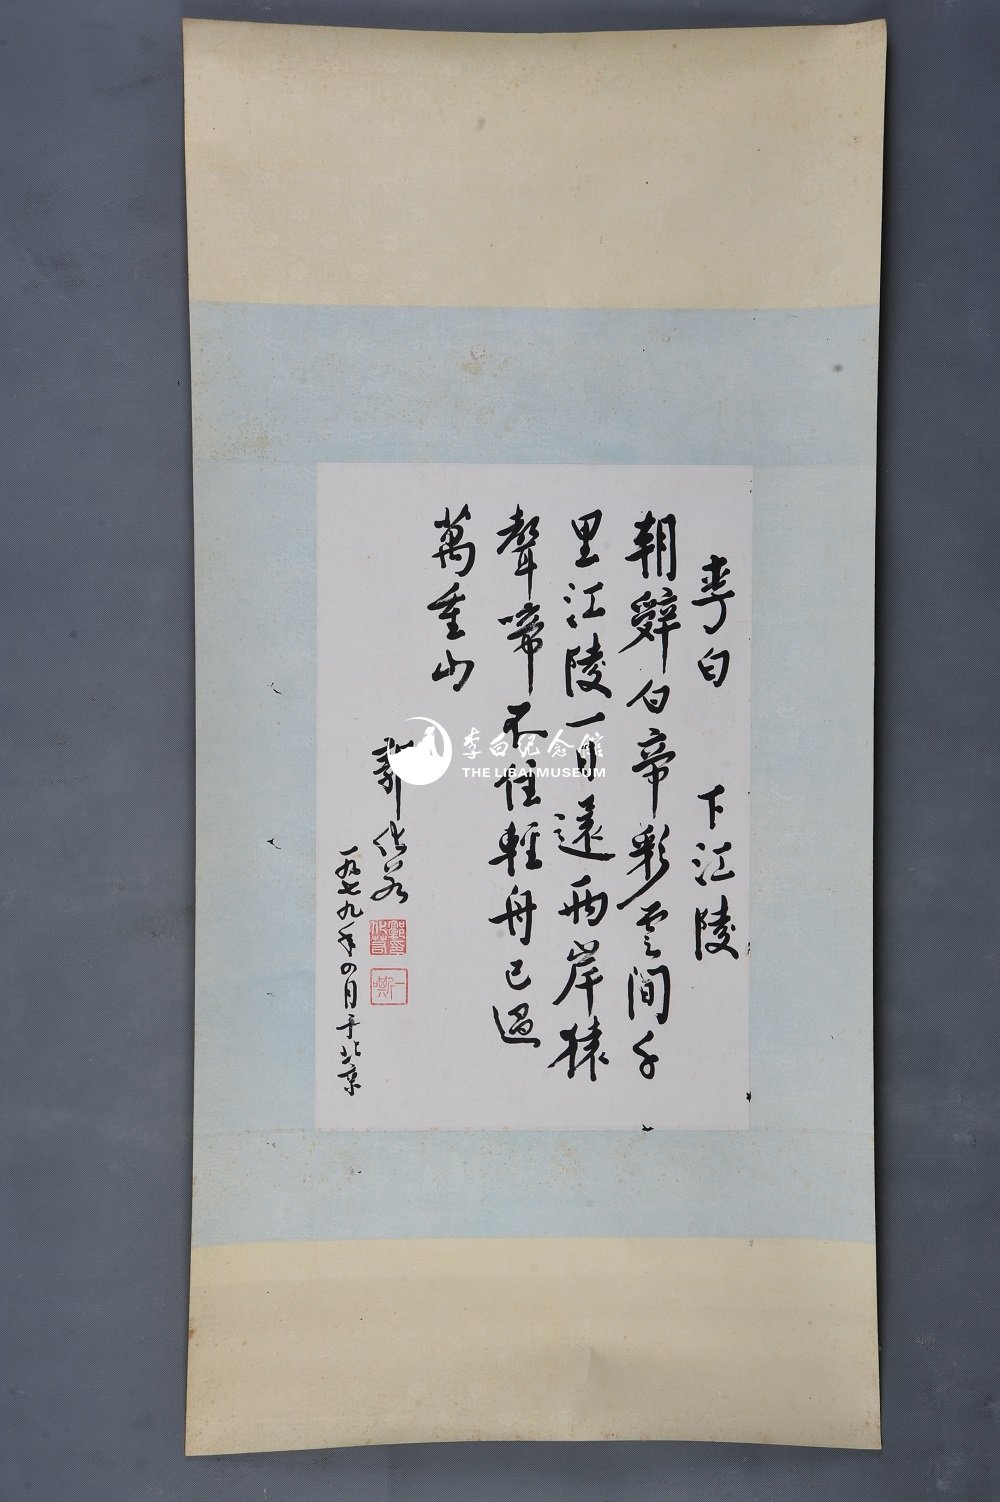 李白 下江陵
朝辭白帝彩雲間千
里江陵一日還兩岸猿
聲啼不住輕舟已過
萬重山
郭化若
一九七九年四月于北京
李白纪念館
THE LIBAI MUSEUM